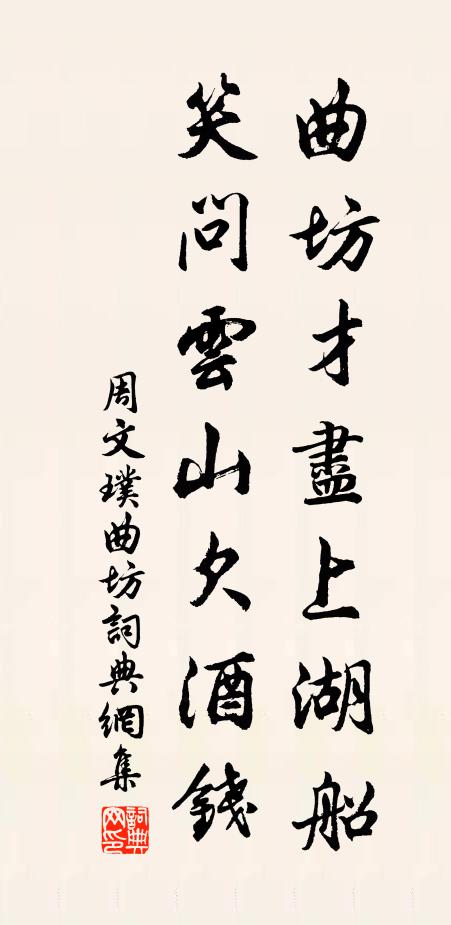 曲坊才盡上湖船
笑問雲山欠酒錢
周文璞曲坊詞典網集
詞典網印